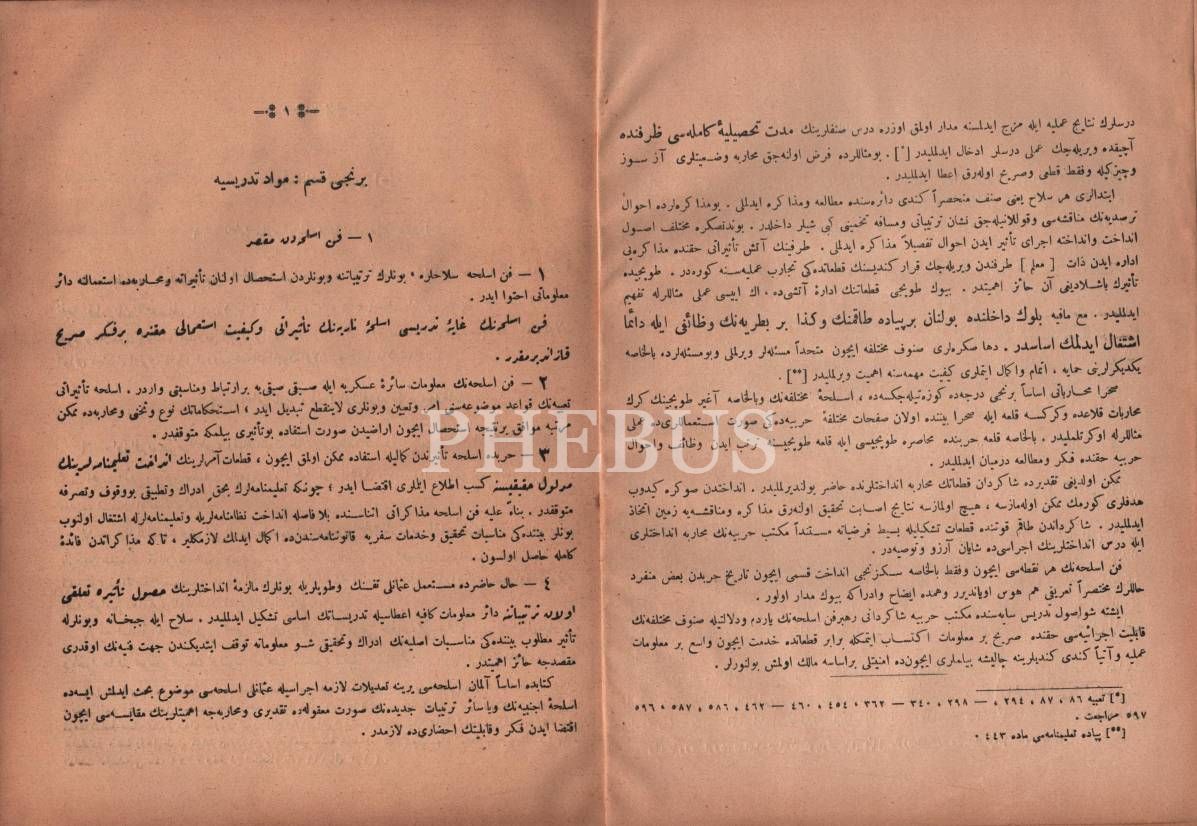 درسلرك نتایج عملیه ایله مزج ایدلمسنه مدار اولمق اوزره درس صنفلرینك مدت تحصیلیهٔ كامله‌سی ظرفنده
آچیقده ویریله‌جك عملی درسلر ادخال ایدلملیدر [*] . بومثاللرده فرض اوله‌جق محاربه وضعیتلری آز سوز
وچیزكیله وفقط قطعی وصریح اوله‌رق اعطا ایدلملیدر .
ابتدالری هر سلاح یعنی صنف منحصراً كندی دائره‌سنده مطالعه ومذاكره ایدلملی . بومذاكره‌لرده احوال
ترصدیه‌نك مناقشه‌سی وقوللانیله‌جق نشان ترتیباتی ومسافه تخمینی كبی شیلر داخلدر . بوندنصكره مختلف اصول
انداخت وانداخته اجرای تأثیر ایدن احوال تفصیلاً مذاكره ایدلملی . طرفینك آتش تأثیراتی حقنده مذاكره‌یی
اداره ایدن ذات [ معلم ] طرفندن ویریله‌جك قرار كندیسنك قطعاتده‌كی تجارب عملیه‌سنه كوره‌در . طوپجیده
تأثیرك باشلادیغی آن حائز اهمیتدر . بیوك طوپجی قطعاتنك ادارهٔ آتشی‌ده ، اك ایسی عملی مثاللرله تفهیم
ایدلملیدر . مع مافیه بلوك داخلنده بولنان برپیاده طاقمنك وكذا بر بطریه‌نك وظائفی ایله دائما
اشتغال ایدلمك اساسدر . دها صكره‌لری صنوف مختلفه ایچون متحداً مسئله‌لر ویرلملی وبومسئله‌لرده بالخاصه
یكدیكرلرینی حمایه ، اتمام واكمال ایتملری كیفیت مهمه‌سنه اهمیت ویرلملیدر [**] .
صحرا محارباتی اساساً برنجی درجه‌ده كوزه‌تیله‌جكسه‌ده ، اسلحهٔ مختلفه‌نك وبالخاصه آغیر طوپجینك كرك
محاربات قلاعده وكركسه قلعه ایله صحرا بیننده اولان صفحات مختلفهٔ حربیه‌ده‌كی صورت استعماللری‌ده عملی
مثاللرله اوكرتلملیدر . بالخاصه قلعه حربنده محاصره طوپجیسی ایله قلعه طوپجیسنه ترتب ایدن وظائف واحوال
حربیه حقنده فكر ومطالعه درمیان ایدلملیدر .
ممكن اولدیغی تقدیرده شاكردان قطعاتك محاربه انداختلرنده حاضر بولندیرلملیدر . انداختدن صوكره كیدوب
هدفلری كورمك ممكن اوله‌مازسه ، هیچ اولمازسه نتایج اصابت تحقیق اوله‌رق مذاكره ومناقشه‌یه زمین اتخاذ
ایدلملیدر . شاكرداندن طاقم قوتنده قطعات تشكیلیله بسیط فرضیاته مستنداً مكتب حربیه‌نك محاربه انداختلری
ایله درس انداختلرینك اجراسی‌ده شایان آرزو وتوصیه‌در .
فن اسلحه‌نك هر نقطه‌سی ایچون وفقط بالخاصه سكزنجی انداخت قسمی ایچون تاریخ حربدن بعض منفرد
حاللرك مختصراً تعریفی هم هوس اویاندیرر وهمده ایضاح وادراكه بیوك مدار اولور .
ایشته شواصول تدریس سایه‌سنده مكتب حربیه شاكردانی رهبرفن اسلحه‌نك یاردم ودلالتیله صنوف مختلفه‌نك
قابلیت اجرائیه‌سی حقنده صریح بر معلومات اكتساب ایتمكله برابر قطعاتده خدمت ایچون واسع بر معلومات
عملیه وآتیاً كندی كندیلرینه چالیشه بیلملری ایچون‌ده امنیتلی براساسه مالك اولمش بولنورلر .
[*] تعبیه ٨٦ ، ٨٧ ، ٢٩٤ ، — ٢٩٨ ، ٣٤٠ — ٣٦٢ ، ٤٥٤ ، ٤٦٠ — ٤٦٢ ، ٥٨٦ ، ٥٨٧ ، ٥٩٦
٥٩٧ مراجعت .
[**] پیاده تعلیمنامه‌سی ماده ٤٤٣ .
١
برنجی قسم : مواد تدریسیه
١ — فن اسلحه‌دن مقصد
١ — فن اسلحه سلاحلره ، بونلرك ترتیباتنه وبونلردن استحصال اولنان تأثیراته ومحاربه‌ده استعمالنه دائر
معلوماتی احتوا ایدر .
فن اسلحه‌نك غایهٔ تدریسی اسلحهٔ ناریه‌نك تأثیراتی وكیفیت استعمالی حقنده برفكر صریح
قازاندیرمقدر .
٢ — فن اسلحه‌نك معلومات سائرهٔ عسكریه ایله صیقی صیقی‌یه برارتباط ومناسبتی واردر . اسلحه تأثیراتی
تعبیه‌نك قواعد موضوعه‌سنی امر وتعیین وبونلری لاینقطع تبدیل ایدر ، استحكاماتك نوع ونخنی ومحاربه‌ده ممكن
مرتبه موافق برنتیجه استحصال ایچون اراضیدن صورت استفاده بوتأثیری بیلمكه متوقفدر .
٣ — حربده اسلحه تأثیرندن كمالیله استفاده ممكن اولمق ایچون ، قطعات آمرلرینك انداخت تعلیمنامه‌لرینك
مدلول حقیقیسنه كسب اطلاع ایتملری اقتضا ایدر ؛ چونكه تعلیمنامه‌لرك بحق ادراك وتطبیقی بووقوف وتصرفه
متوقفدر . بناءً علیه فن اسلحه مذاكراتی اثناسنده بلافاصله انداخت نظامنامه‌لریله وتعلیمنامه‌لرله اشتغال اولنوب
بونلر بیننده‌كی مناسبات تحقیق وخدمات سفریه قانوننامه‌سندن‌ده اكمال ایدلمك لازمكلیر ، تاكه مذاكراتدن فائدهٔ
كامله حاصل اولسون .
٤ — حال حاضرده مستعمل عثمانلی تفنك وطوپلریله بونلرك مالزمهٔ انداختلرینك حصول تأثیره تعلقی
اولان ترتیباتنه دائر معلومات كافیه اعطاسیله تدریساتك اساسی تشكیل ایدلملیدر . سلاح ایله جبخانه وبونلرله
تأثیر مطلوب بیننده‌كی مناسبات اصلیه‌نك ادراك وتحقیقی شو معلوماته توقف ایتدیكندن جهت فنیه‌نك اوقدری
مقصدجه حائز اهمیتدر .
كتابده اساساً آلمان اسلحه‌سی یرینه تعدیلات لازمه اجراسیله عثمانلی اسلحه‌سی موضوع بحث ایدلمش ایسه‌ده
اسلحهٔ اجنبیه‌نك ویاسائر ترتیبات جدیده‌نك صورت معقوله‌ده تقدیری ومحاربه‌جه اهمیتلرینك مقایسه‌سی ایچون
اقتضا ایدن فكر وقابلیتك احضاری‌ده لازمدر .
PHEBUS